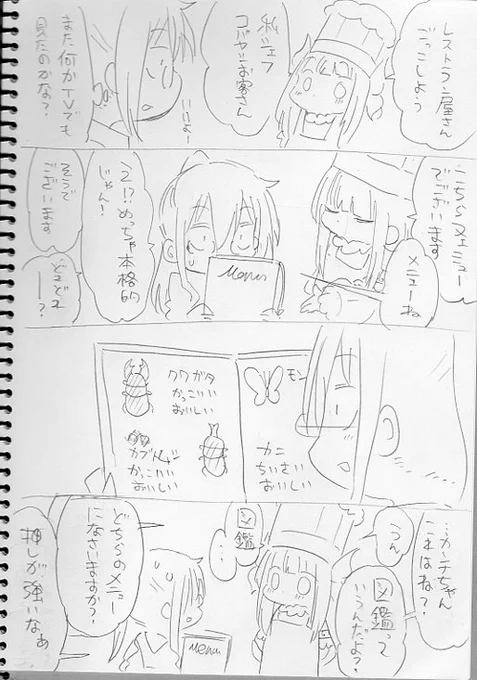 レストラン屋さん
ごっこしよう
私シェフ
コバヤシお客さん
いいよー
また何かTVでも
見たのかな？
こちらメニュー
でございます
メニューね
えっ!?めっちゃ本格的
じゃん！
そうで
ございます
どれどれ
ー？
Menu
モン
カニ
ちいさい
おいしい
クワガタ
かっこいい
おいしい
カブトムシ
かっこいい
おいしい
…カンナちゃん
これはね？
うん
図鑑って
いうんだよ？
図鑑
…
Menu
どちらのメニュー
になさいますか？
押しが強いなぁ